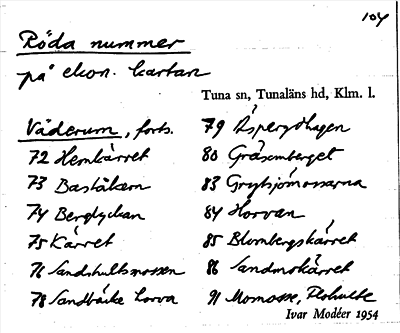 104
Röda nummer
på ekon. kartan
Tuna sn, Tunaläns hd, Klm. l.
Väderum, forts.
72 Hemkärret
73 Baståkern
74 Berglyckan
75 Kärret
76 Sandshultsmossen
78 Sandbäcke horva
79 Äsperydhagen
80 Gräsemberget
83 Grytsjömossarna
84 Horvan
85 Blombergskärret
86 Sandmokärret
91 Momosse,
Ivar Modéer 1954